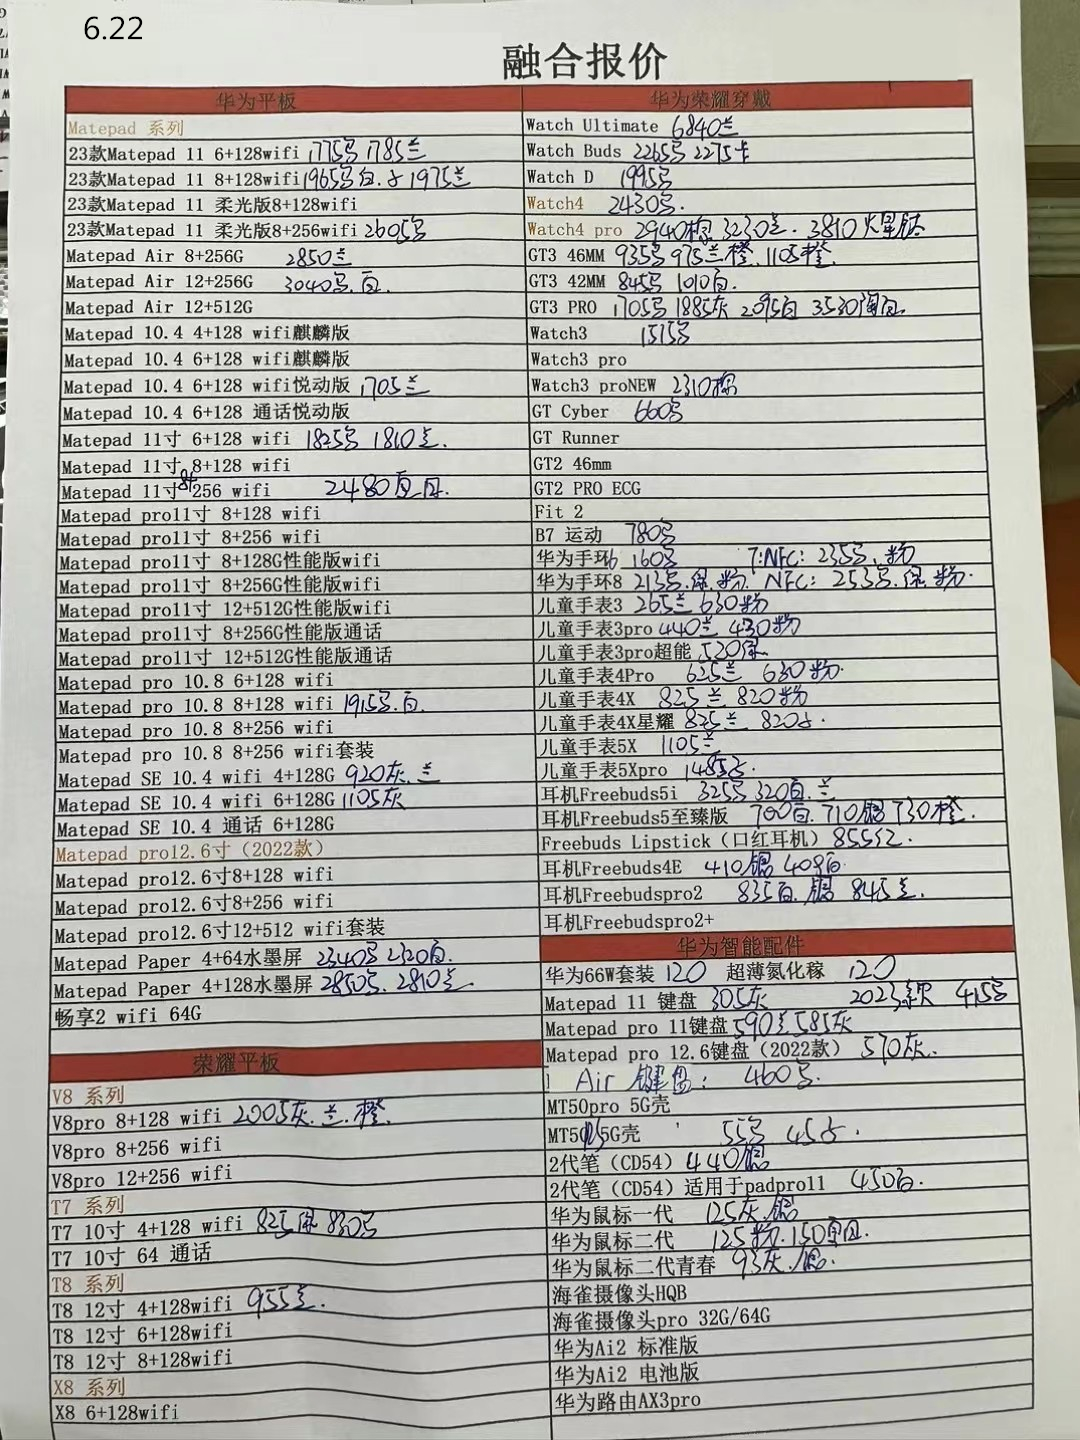 6.22
融合报价
华为平板
Matepad 系列
23款Matepad 11 6+128wifi 1775 1785兰
23款Matepad 11 8+128wifi 1965 白 1975兰
23款Matepad 11 柔光版8+128wifi
23款Matepad 11 柔光版8+256wifi 2605
Matepad Air 8+256G 2850兰
Matepad Air 12+256G 3040 白.
Matepad Air 12+512G
Matepad 10.4 4+128 wifi麒麟版
Matepad 10.4 6+128 wifi麒麟版
Matepad 10.4 6+128 wifi悦动版 1705兰
Matepad 10.4 6+128 通话悦动版
Matepad 11寸 6+128 wifi 1825 1810兰.
Matepad 11寸 8+128 wifi
Matepad 11寸 8+256 wifi 2480
Matepad pro11寸 8+128 wifi
Matepad pro11寸 8+256 wifi
Matepad pro11寸 8+128G性能版wifi
Matepad pro11寸 8+256G性能版wifi
Matepad pro11寸 12+512G性能版wifi
Matepad pro11寸 8+256G性能版通话
Matepad pro11寸 12+512G性能版通话
Matepad pro 10.8 6+128 wifi
Matepad pro 10.8 8+128 wifi 1915 白.
Matepad pro 10.8 8+256 wifi
Matepad pro 10.8 8+256 wifi套装
Matepad SE 10.4 wifi 4+128G 920灰.兰
Matepad SE 10.4 wifi 6+128G 1105灰
Matepad SE 10.4 通话 6+128G
Matepad pro12.6寸（2022款）
Matepad pro12.6寸8+128 wifi
Matepad pro12.6寸8+256 wifi
Matepad pro12.6寸12+512 wifi套装
Matepad Paper 4+64水墨屏 2340 2320白.
Matepad Paper 4+128水墨屏 2850 2810兰
畅享2 wifi 64G
荣耀平板
V8 系列
V8pro 8+128 wifi 2005灰.兰.橙
V8pro 8+256 wifi
V8pro 12+256 wifi
T7 系列
T7 10寸 4+128 wifi 825绿 830
T7 10寸 64 通话
T8 系列
T8 12寸 4+128wifi 955兰.
T8 12寸 6+128wifi
T8 12寸 8+128wifi
X8 系列
X8 6+128wifi
华为荣耀穿戴
Watch Ultimate 6840兰
Watch Buds 2265 2275卡
Watch D 1995
Watch4 2430
Watch4 pro 2940棕 3230兰. 3810火星钛
GT3 46MM 935 975兰橙.1105橙.
GT3 42MM 845 1010白.
GT3 PRO 1705 1885灰 2095白 3530陶白.
Watch3 1515
Watch3 pro
Watch3 proNEW 2310棕
GT Cyber 660
GT Runner
GT2 46mm
GT2 PRO ECG
Fit 2
B7 运动 780
华为手环6 160 7:NFC: 235 .粉
华为手环8 213 .绿.粉. NFC: 253 .绿.粉.
儿童手表3 265兰 630粉
儿童手表3pro 440兰 430粉
儿童手表3pro超能 520绿
儿童手表4Pro 625兰 630粉.
儿童手表4X 825兰 820粉
儿童手表4X星耀 825兰 820
儿童手表5X 1105兰
儿童手表5Xpro 1485
耳机Freebuds5i 325 320白.兰
耳机Freebuds5至臻版 700白.710银730橙.
Freebuds Lipstick（口红耳机）855红.
耳机Freebuds4E 410银 405白
耳机Freebudspro2 835白.银 845兰.
耳机Freebudspro2+
华为智能配件
华为66W套装 120 超薄氮化稼 120
Matepad 11 键盘 305灰 2023款 415
Matepad pro 11键盘 590兰585灰
Matepad pro 12.6键盘（2022款） 570灰.
Air 键盘: 460
MT50pro 5G壳
MT50 5G壳 55 45
2代笔（CD54）440银
2代笔（CD54）适用于padpro11 450白.
华为鼠标一代 125灰.银
华为鼠标二代 125粉.150
华为鼠标二代青春 93灰.银.
海雀摄像头HQB
海雀摄像头pro 32G/64G
华为Ai2 标准版
华为Ai2 电池版
华为路由AX3pro